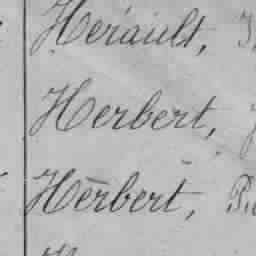 Hérault,
Herbert,
Herbert, P.